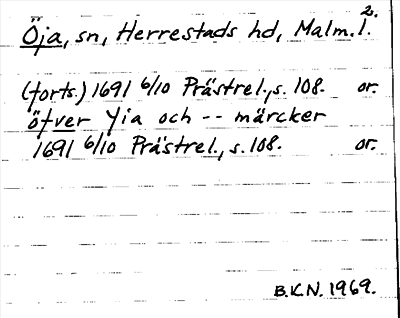 2.
Öja, sn, Herrestads hd, Malm.l.
(forts.) 1691 6/10 Prästrel., s. 108. or.
öfver Yia och -- märcker
1691 6/10 Prästrel., s. 108. or.
B.K.N. 1969.